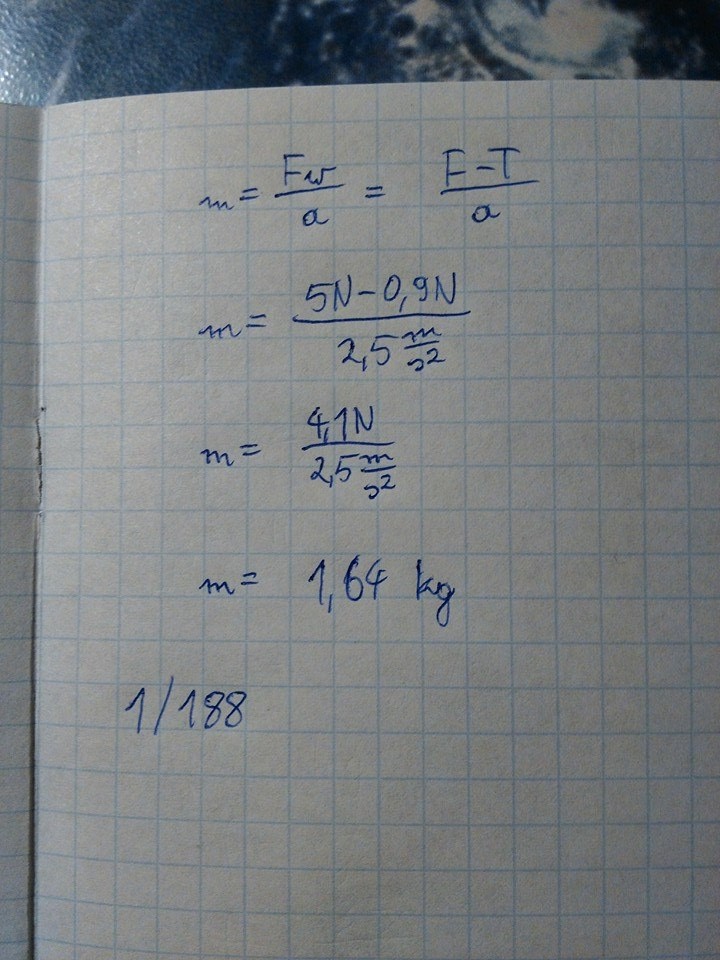 m = Fw/a = F-T/a
m = 5N-0,9N/2,5 m/s²
m = 4,1N/2,5 m/s²
m = 1,64 kg
1/188